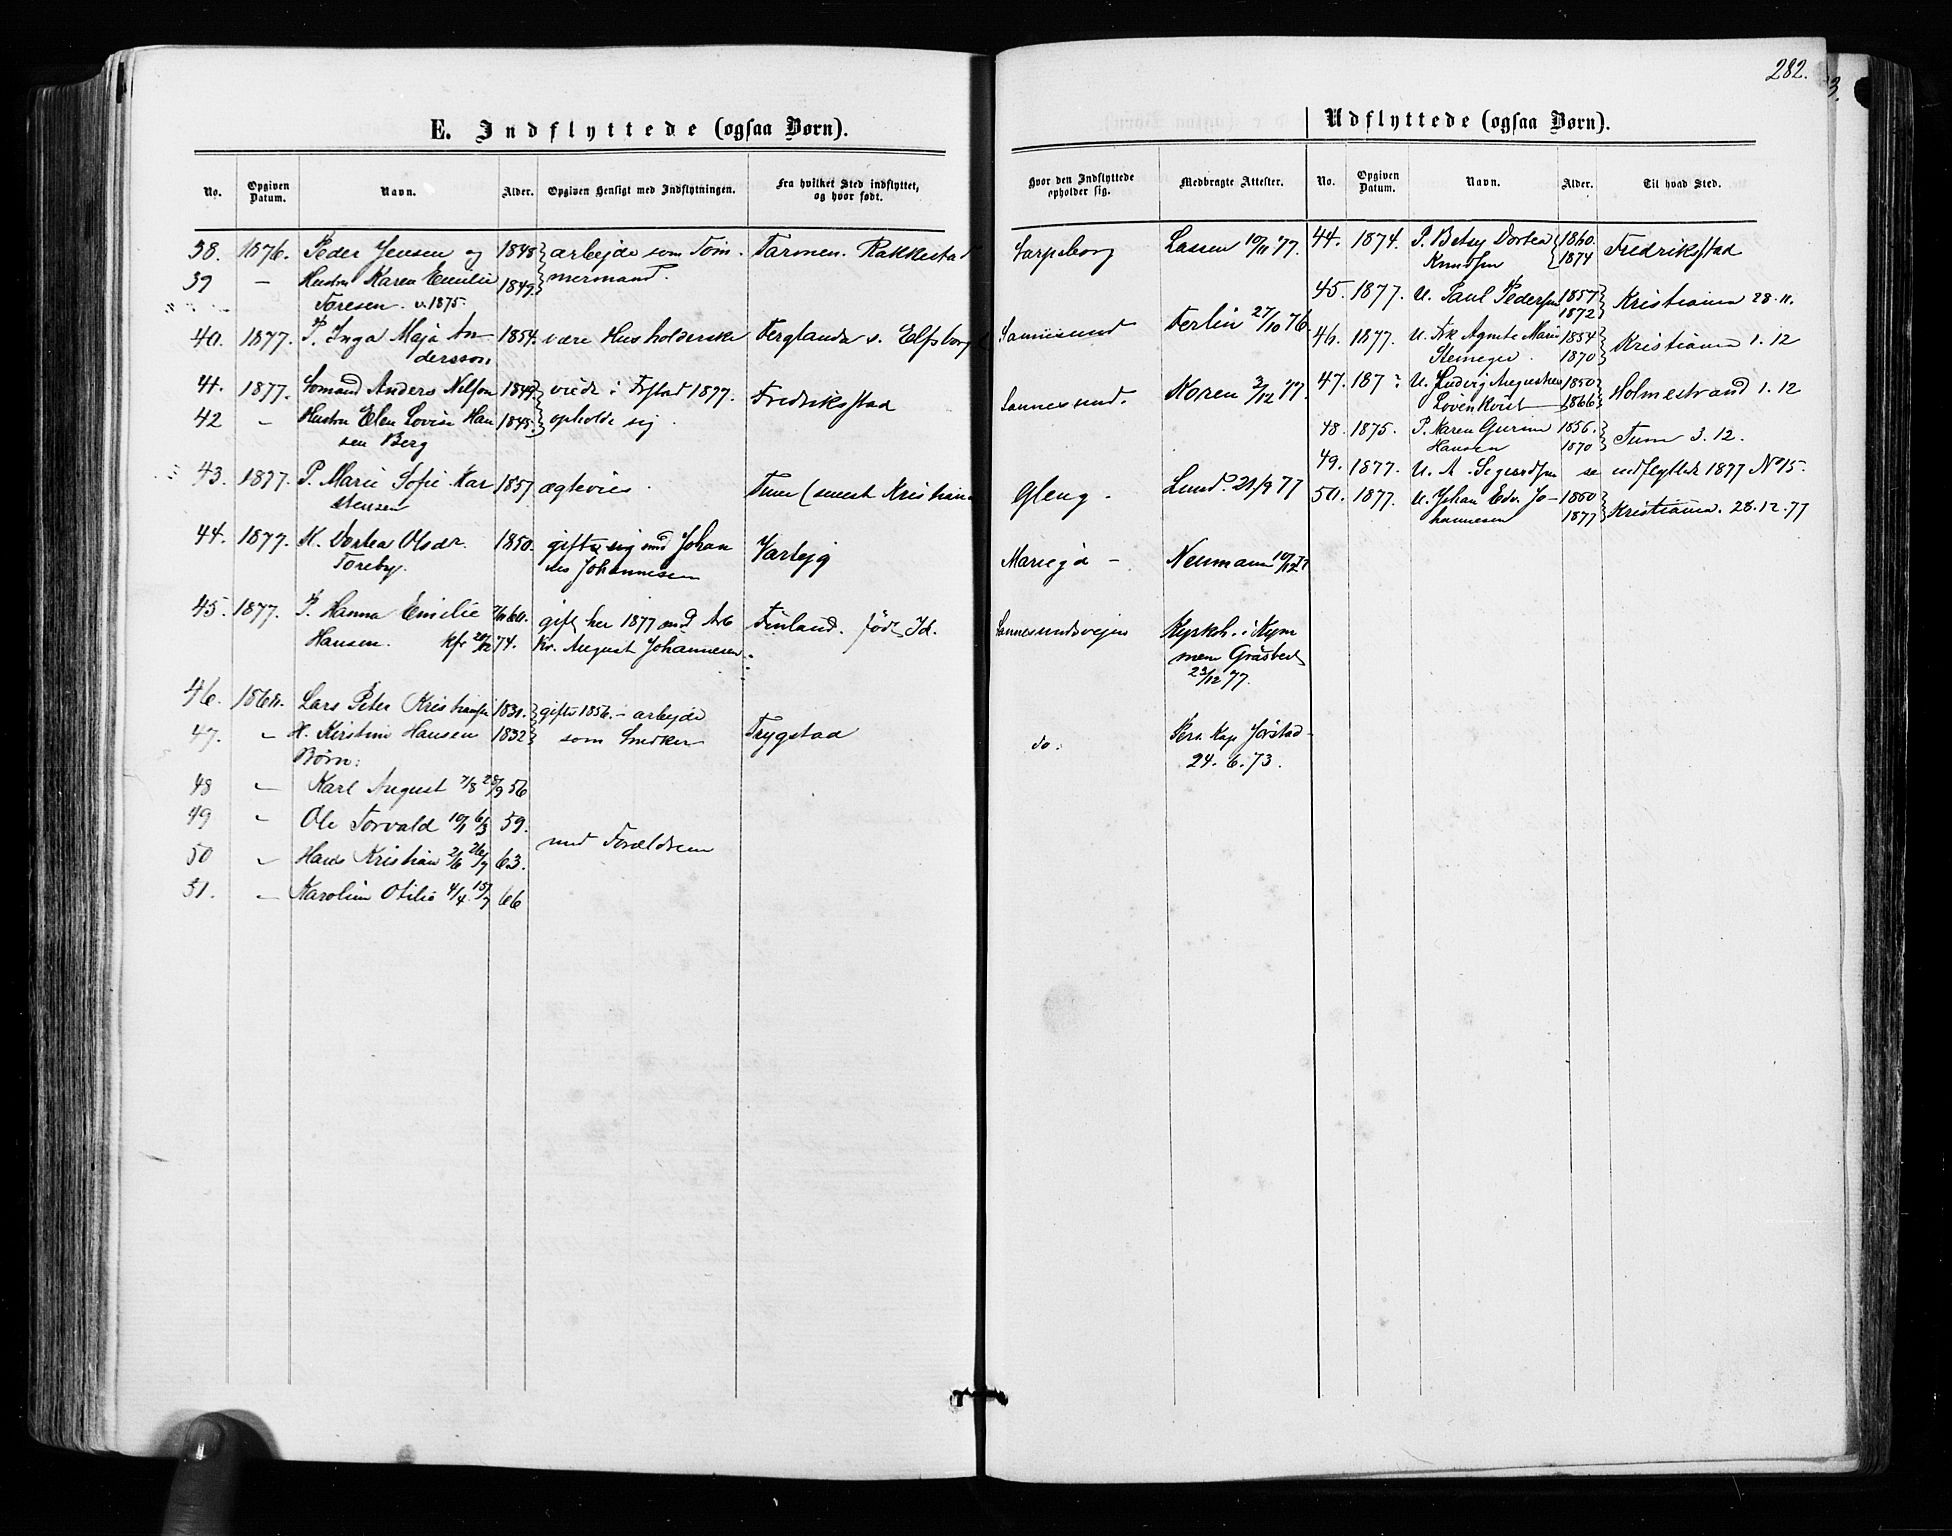 282.
3.
E. Indflyttede (ogsaa Børn).
No. Opgiven Datum. Navn. Alder. Opgiven Hensigt med Indflytningen. Fra hvilket Sted indflyttet, og hvor født.
38. 1876. Peder Jensen og 1848 arbejde som Tøm- Tarmen. Rakkestad
39 — Hustru Karen Emilie 1849 mermand.
Toresen. v. 1875.
40. 1877. P. Inga Maja An- 1854. være Husholderske Ferglanda s. Elfsborg
dersson
41. 1877. Sømand Anders Nilsen 1849 viede i Fstad 1877. Fredriksstad
42 " Hustru Elen Lovise Han 1848. opholde sig.
sen Berg
43. 1877. P. Marie Sofie Kar 1857 ægtevies. Tune (senest Kristiania
stensen
44. 1877. K. Dortea Olsdr. 1850. gifte sig med Johan Varteig
Toreby. nes Johannesen
45. 1877. P. Hanna Emilie gift her 1877 med Arb Finland. født Id.
Hansen. kfr 74. Kr. August Johannesen
46. 1868. Lars Peter Kristiansen 1831. gifte 1856. - arbejde
47. " H. Kirstine Hansen 1832 som Snedker Trygstad
Børn:
48 " Karl August 7/8 28/9 56
49 " Ole Torvald 10/1 6/3 59.
50 " Hans Kristian 2/6 26/7 63. med Forældrene
51. " Karoline Otilie 4/4 15/7 66
Hvor den Indflyttede opholder sig. Medbragte Attester.
Sarpsborg Lassen 10/11 77.
Sannesund Ferlin 27/10 76.
Sannesund. Koren 3/12 77.
Gleng - Lund. 21/9 77
Mariegd - Neumann 10/12 77
Sannesundsvejen Kyrkoh. i Kym
mene Gråsbeck
23/12 77.
do. Pers. Kap Jørstad
24. 6. 73.
Udflyttede (ogsaa Børn).
No. Opgiven Datum. Navn. Alder. Til hvad Sted.
44. 1874. P. Betsy Dortea 1860. Fredriksstad
Knudsen 1874
45. 1877. U. Paul Pedersen 1857 Kristiania 28. 11.
1872
46. 1877. U. Frk Agnete Marie 1854 Kristiania 1. 12
Steneger. 1870
47. 187 U. Ludvig Augustinus 1850 Holmestrand 1. 12
Løvenkvist 1866
48. 1875. P. Maren Gurine 1856. Tune 3. 12.
Hansen 1870
49. 1877. U. A. Sigurdsen se indflyttede 1877 No 15.
50. 1877. U. Johan Edv. Jo- 1860 Kristiania. 28. 12. 77
hannesen 1877